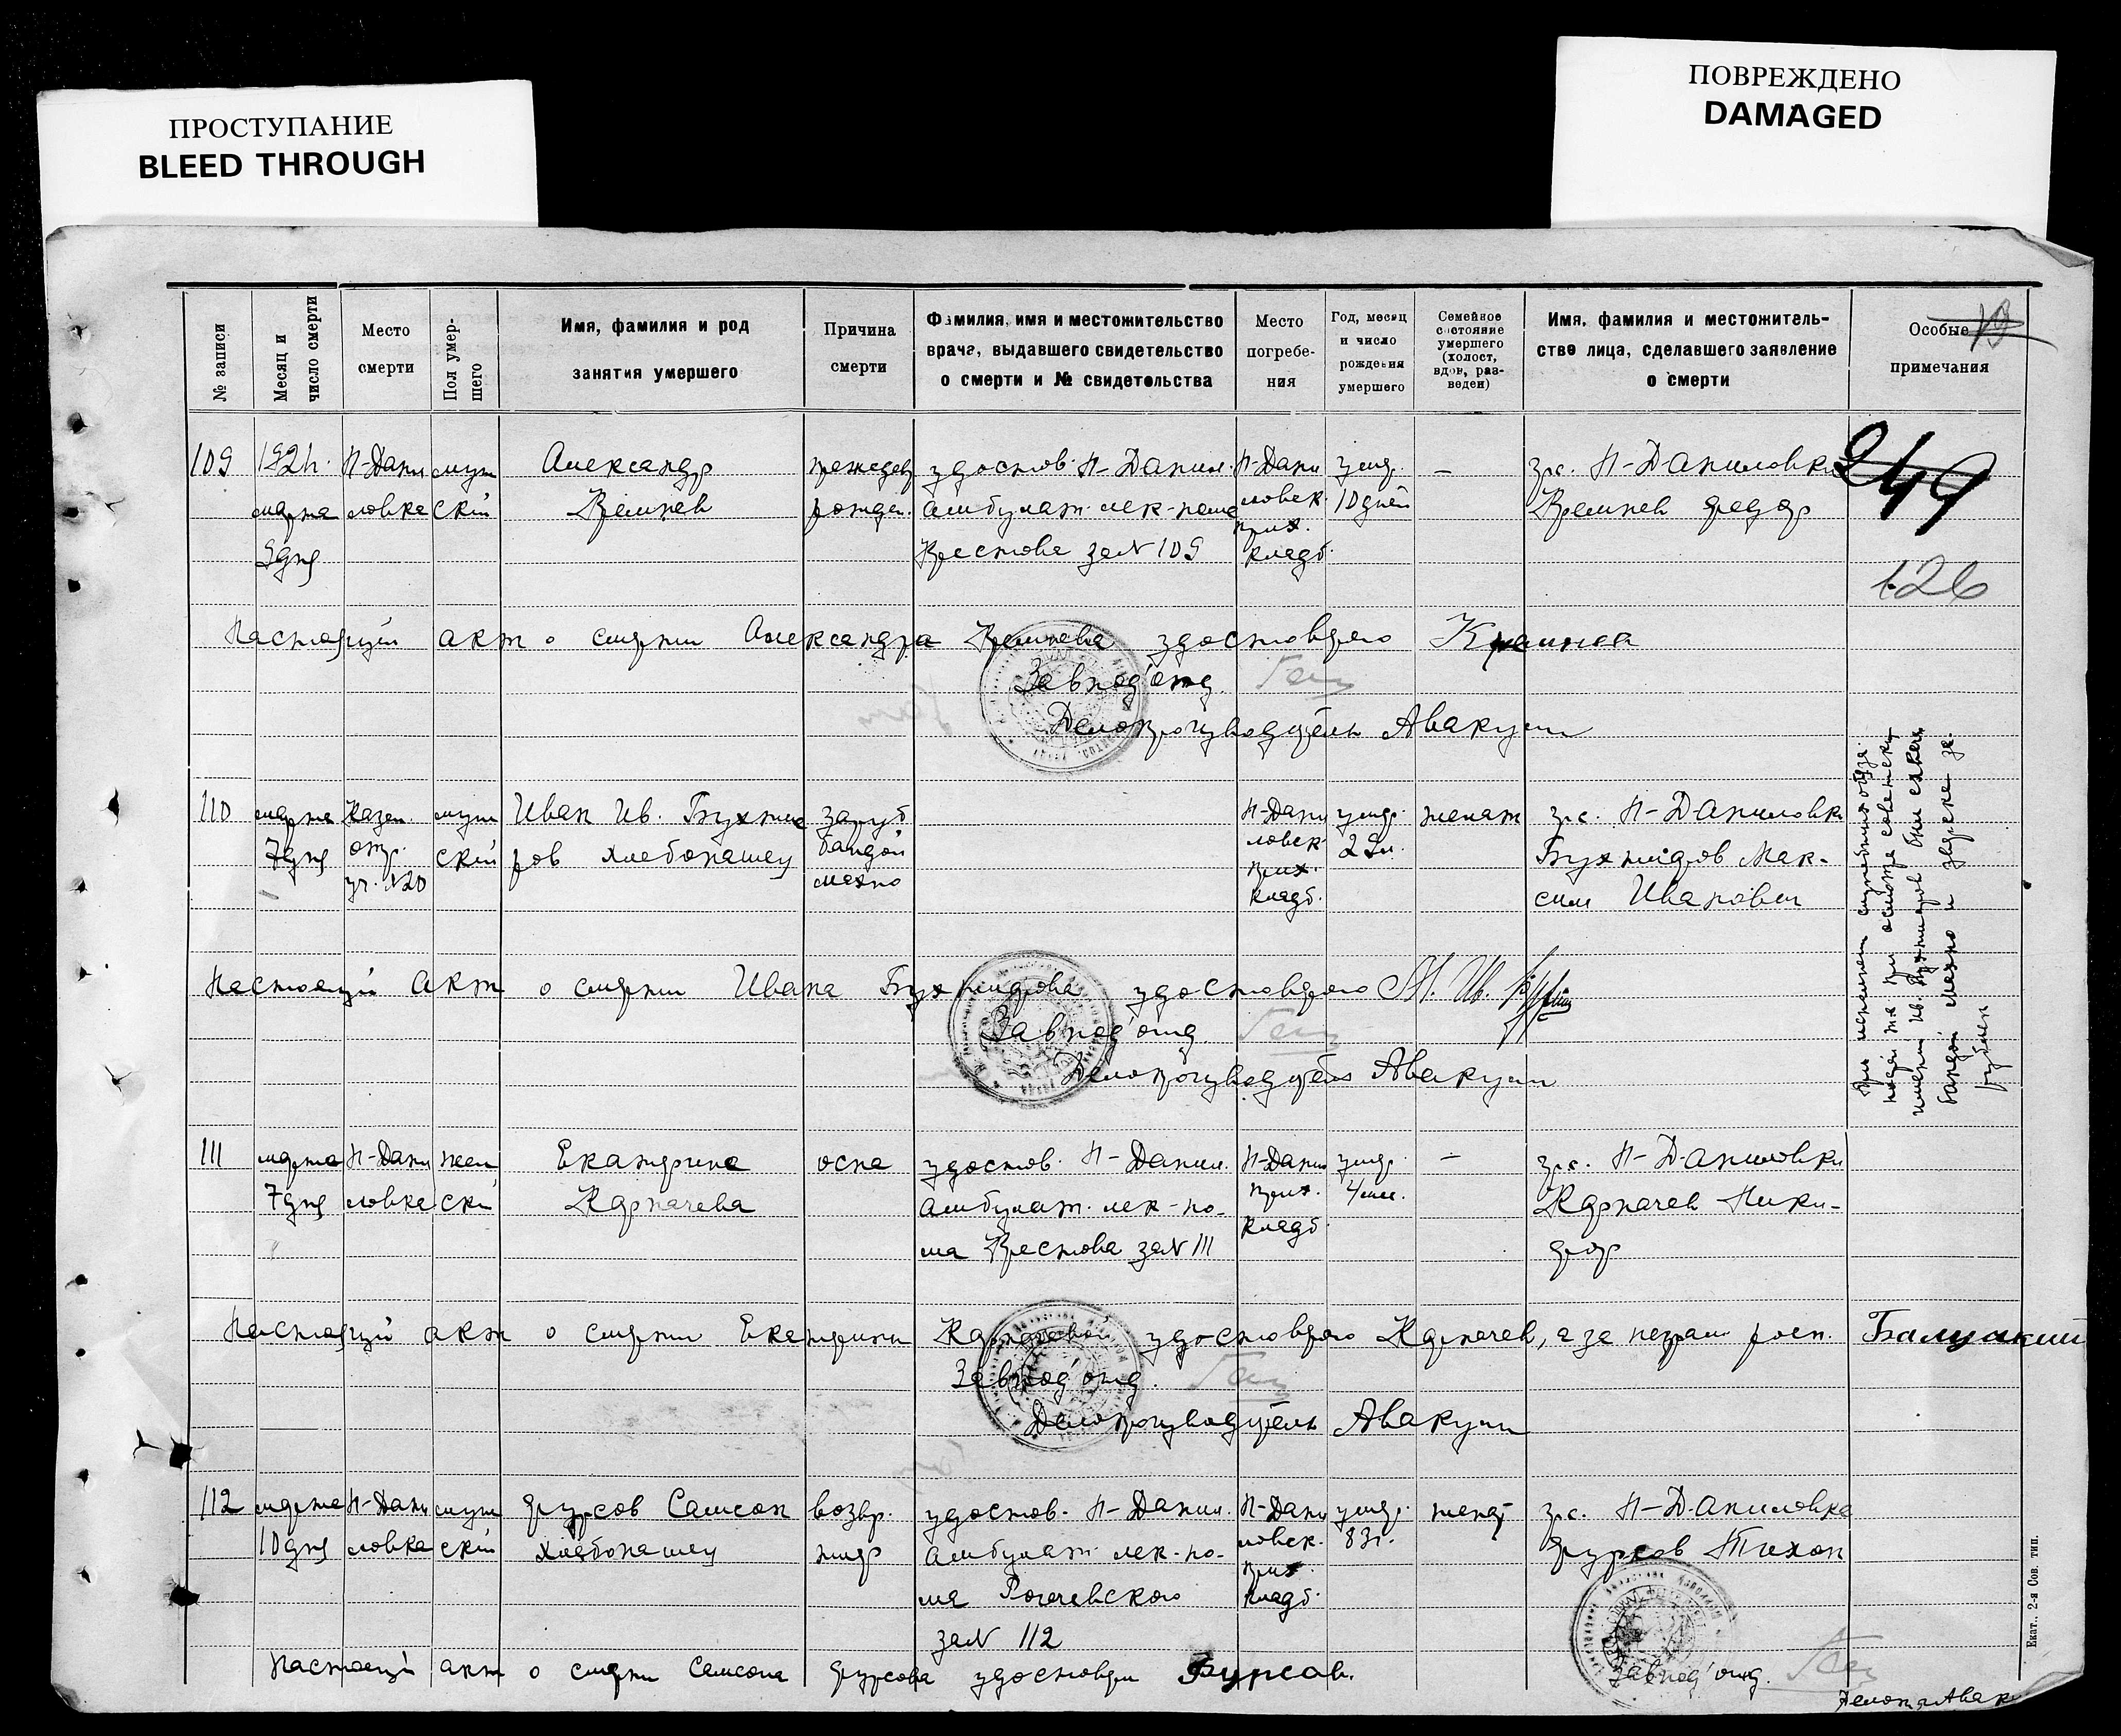 ПРОСТУПАНИЕ
BLEED THROUGH
ПОВРЕЖДЕНО
DAMAGED
№ записи
Месяц и число смерти
Место смерти
Пол умер-
шего
Имя, фамилия и род
занятия умершего
Причина
смерти
Фамилия, имя и местожительство
врача, выдавшего свидетельство
о смерти и № свидетельства
Место
погребе-
ния
Год, месяц
и число
рождения
умершего
Семейное
состояние
умершего
(холост,
вдов, раз-
веден)
Имя, фамилия и местожитель-
ство лица, сделавшего заявление
о смерти
Особые
примечания
249
126
109
1921.
марта
9 дня
Н-Дани
ловка
муж
ский
Александр
Кремнев
преждев
рожден.
удостов. Н-Данил.
амбулат. лек-пома
Крестова за N 109
Н-Дани
ловск.
прих.
кладб.
умер.
10 дней
—
гр. с. Н-Даниловки
Кремнев Федор
Настоящий акт о смерти Александра Кремнева удостоверяю Кремнев
Завпод'отд.
Делопроизводитель Авакум
110
марта
7 дня
Казен.
отр.
уч. N20
муж
ский
Иван Ив. Бухтия
ров хлебопашец
заруб
бандой
махно
Н-Дани
ловск.
прих.
кладб.
умер.
женат
гр. с. Н-Даниловки
Бухтияров Мак-
сим Иванович
При исполнен служебных обяза.
при осмотре советских
имений Ив. Бухтияров был схвачен
бандой махно и зверски за-
рублен
Настоящий акт о смерти Ивана Бухтиярова удостоверяю М. Ив.
Завпод'отд.
Делопроизводитель Авакум
111
марта
7 дня
Н-Дани
ловка
жен
ский
Екатерина
Карпачева
оспа
удостов. Н-Данил.
амбулат. лек-по-
ма Крестова за N 111
Н-Дани
прих.
кладб.
умер.
4 м.
—
гр. с. Н-Даниловки
Карпачев Ники-
фор
Настоящий акт о смерти Екатерины Карпачевой удостоверяю Карпачев, а за неграм. росп. Балуцкий
Завпод'отд.
Делопроизводитель Авакум
112
марта
10 дня
Н-Дани
ловка
муж
ский
Фурсов Самсон
хлебопашец
удостов. Н-Данил.
амбулат. лек-по-
ма Рогачевского
за N 112
Н-Дани
ловск.
прих.
кладб.
умер.
83 г.
женат
гр. с. Н-Даниловка
Фурсов Тихон
Настоящий акт о смерти Самсона Фурсова удостоверяю Фурсов.
Завпод'отд.
Екат., 2-я Сов. тип.